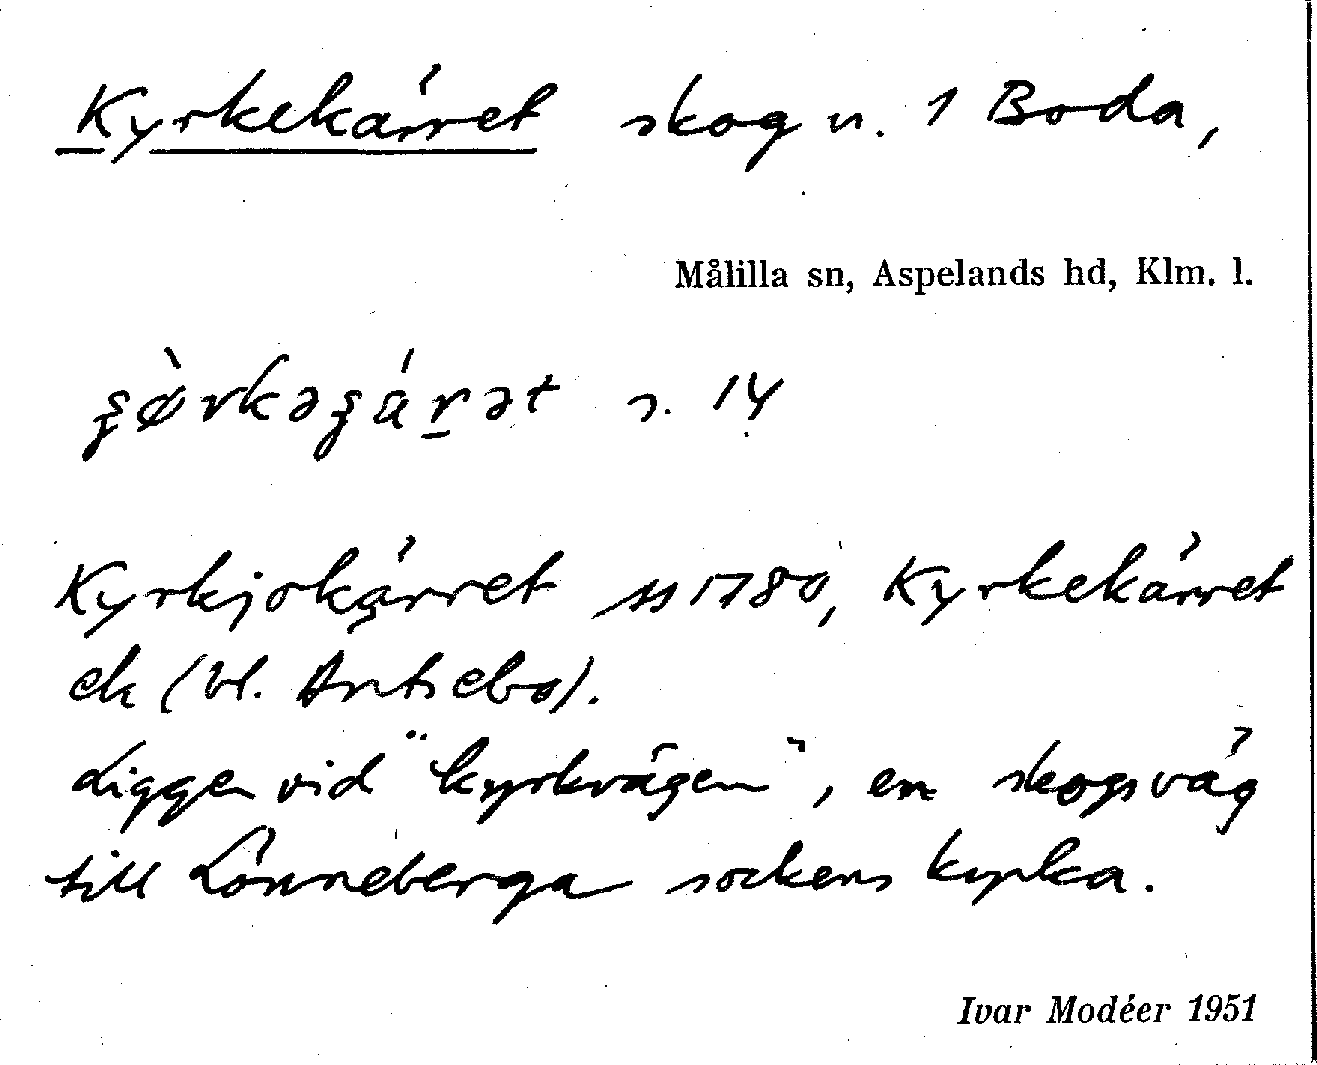 Kyrkekärret skog u. 1 Boda,
Målilla sn, Aspelands hd, Klm. l.
s. 14
Kyrkjokärret 1780, Kyrkekärret
ek (bl. Antsebo).
Ligger vid "kyrkvägen", en skogsväg
till Lönneberga sockens kyrka.
Ivar Modéer 1951